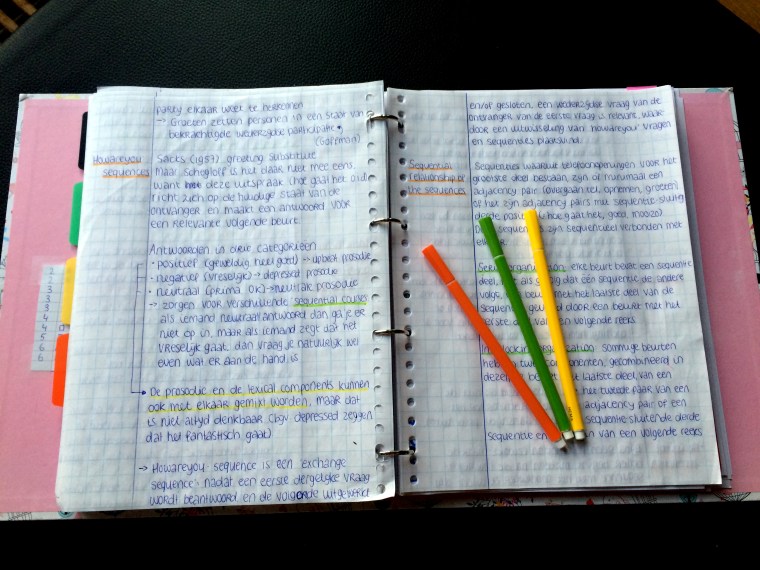 partij elkaar weet te herkennen
-> Groeten zetten personen in een staat van
bekrachtigde wederzijdse participatie.
(Goffman)
Howareyou
sequences
Sacks (1987), greeting substitute
maar Schegloff is het daar niet mee eens
want deze uitspraak (hoe gaat het o.i.d)
richt zich op de huidige staat van de
ontvanger en maakt een antwoord voor
een relevante volgende beurt.
Antwoorden in drie categorieën
• positief (geweldig heel goed) -> upbeat prosodie
• negatief (vreselijk) -> depressed prosodie
• neutraal (prima ok) -> neutrale prosodie
-> zorgen voor verschillende sequential courses
als iemand neutraal antwoord dan ga je er
niet op in, maar als iemand zegt dat het
vreselijk gaat, dan vraag je natuurlijk wel
even wat er aan de hand is
De prosodie en de lexical components kunnen
ook met elkaar gemixt worden, maar dat
is niet altijd denkbaar (bijv depressed zeggen
dat het fantastisch gaat)
-> Howareyou sequence is een exchange
sequence: nadat een eerste dergelijke vraag
wordt beantwoord en de volgorde uitgewerkt
en/of gesloten, een wederzijdse vraag van de
ontvanger van de eerste vraag is relevant, waar
door een uitwisseling van howareyou vragen
en sequenties plaatsvind.
Sequential
relationship of
the sequences
Sequenties waaruit telefoonopeningen voor het
grootste deel bestaan, zijn of minimaal een
adjacency pair (overgaan tel, opnemen, groeten)
of het zijn adjacency pairs mit sequentie sluitig
derde hoe gaat het, goed, mooizo)
sequenties zijn sequentieel verbonden met
elke beurt bevat een sequentie
deel, dat de andere
volgt met het laatste deel van de
door een beurt met het
eerste deel van een volgende reeks.
sommige beurten
hebben gecombineerd in
deze laatste deel van een
het tweede paar van een
adjacency pair of een
sequentie sluitende derde
sequentie en van een volgende reeks